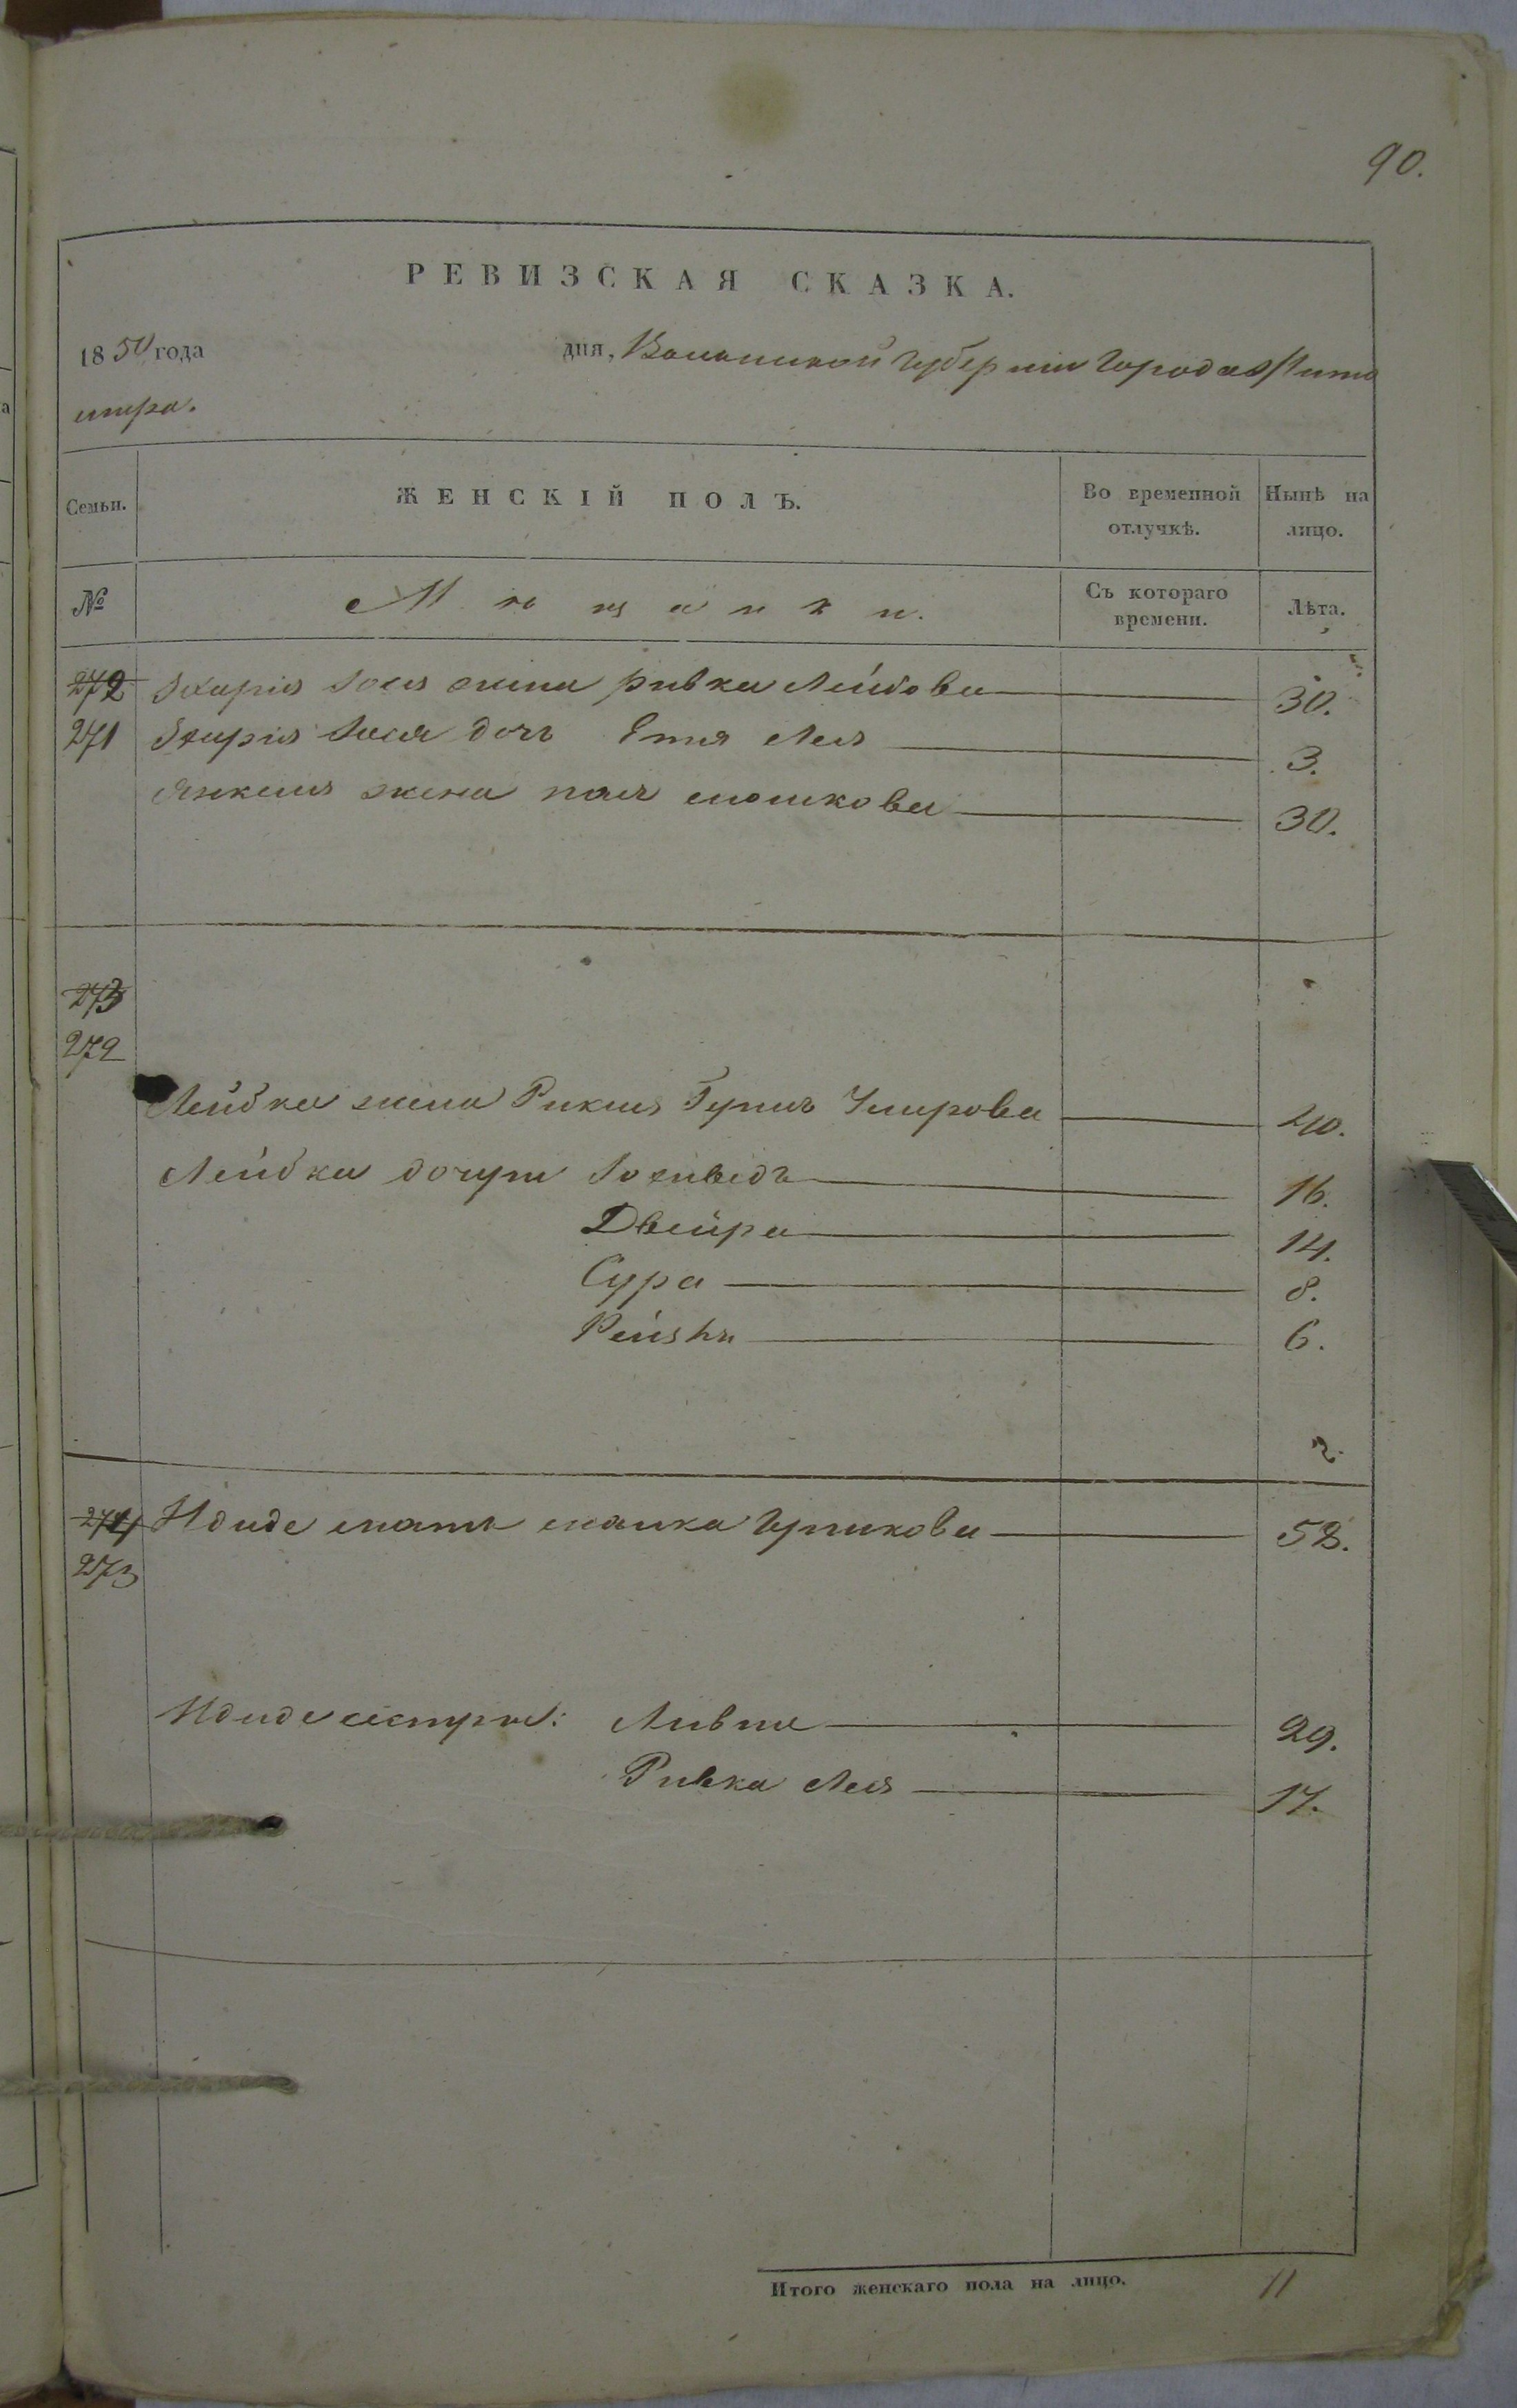 90.
РЕВИЗСКАЯ СКАЗКА.
1850 года дня, Волынской Губерніи Города Жито
мира.
Семьи. ЖЕНСКІЙ ПОЛЪ. Во временной отлучкѣ. Нынѣ на лицо.
№ Мѣщанки. Съ котораго времени. Лѣта.
272 Зхарія Іося жена Ривка Лейбова 30.
271 Зхарія Іося дочь Етя Лея 3.
Янкеля жена Мошкова 30.
273
272
Лейбка жена Рикля 40.
Лейбка дочери Іохведъ 16.
Двейра 14.
Сура 8.
Рейзя 6.
274 мать Малка Ицикова 58.
273
сестры: Ливше 29.
Ривка Лея 17.
Итого женскаго пола на лицо. 11